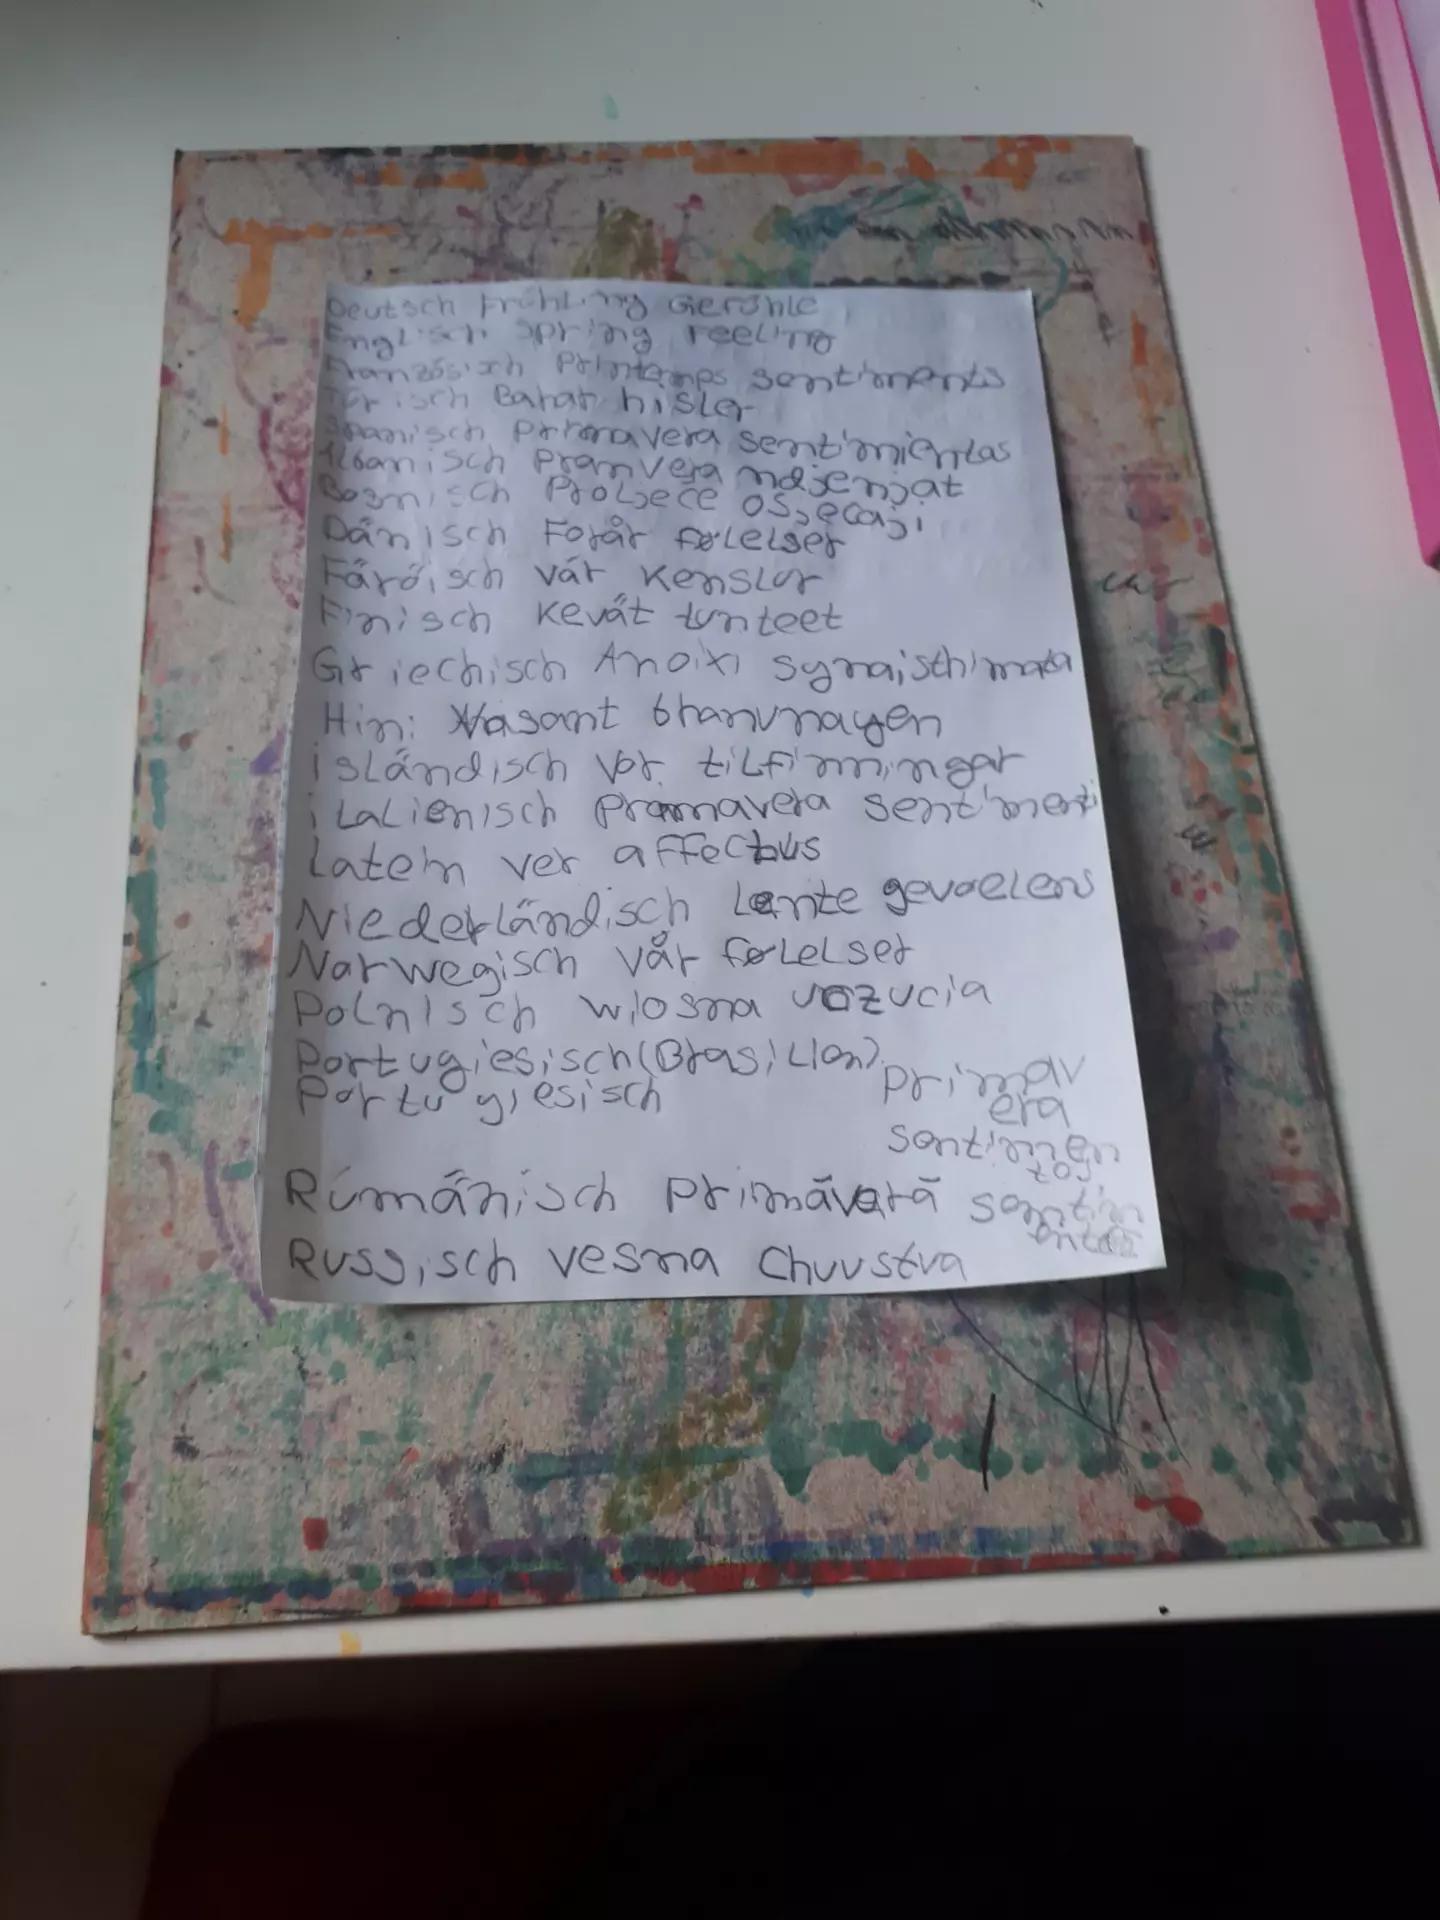 Deutsch Frühling Gefühle
Englisch spring feeling
Französisch Printemps sentiments
Türisch Bahar hisler
Spanisch Primavera sentimientas
Albanisch Pranvera ndjenjat
Bosnisch Proljece osjecaji
Dänisch Forår følelser
Färöisch vár Kenslur
Finisch Kevät tunteet
Griechisch Anoixi synaisthimata
Hindi Vasant bhanvnayen
isländisch Vor tilfinningar
italienisch Pramavera sentimenti
Latein ver affectus
Niederländisch Lente gevoelens
Norwegisch vår følelser
Polnisch wiosna uczucia
Portugiesisch (Brasilian)
Portugiesisch
Primav
era
sentimen
tos
Rumänisch Primăvară sentim
ente
Russisch vesna Chuvstva